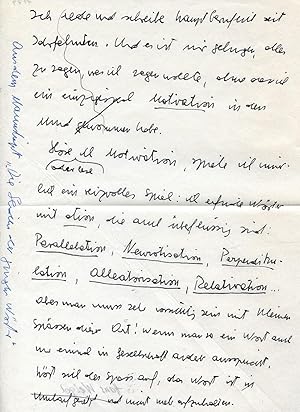 Ich rede und schreibe hauptberuflich seit
Jahrzehnten. Und es ist mir gelungen, alles
zu sagen, was ich sagen wollte, ohne dass ich
ein einziges Mal Motivation in den
Mund genommen habe.
Höre ich Motivation, spiele ich
oder lese
ein reizvolles Spiel: ich erfinde Wörter
mit ation, die auch überflüssig sind:
Parallelation, Neurotisation, Perpendiku-
lation, Alleatorisation, Relativation...
aber man muss sehr vorsichtig sein mit kleinen
Spässen dieser Art! wenn man so ein Wort auch
nur einmal in Gesellschaft anderer ausspricht,
hört sich der Spass auf, das Wort ist in
Umlauf und nicht mehr aufzuhalten.
Aus dem Manuskript "Die